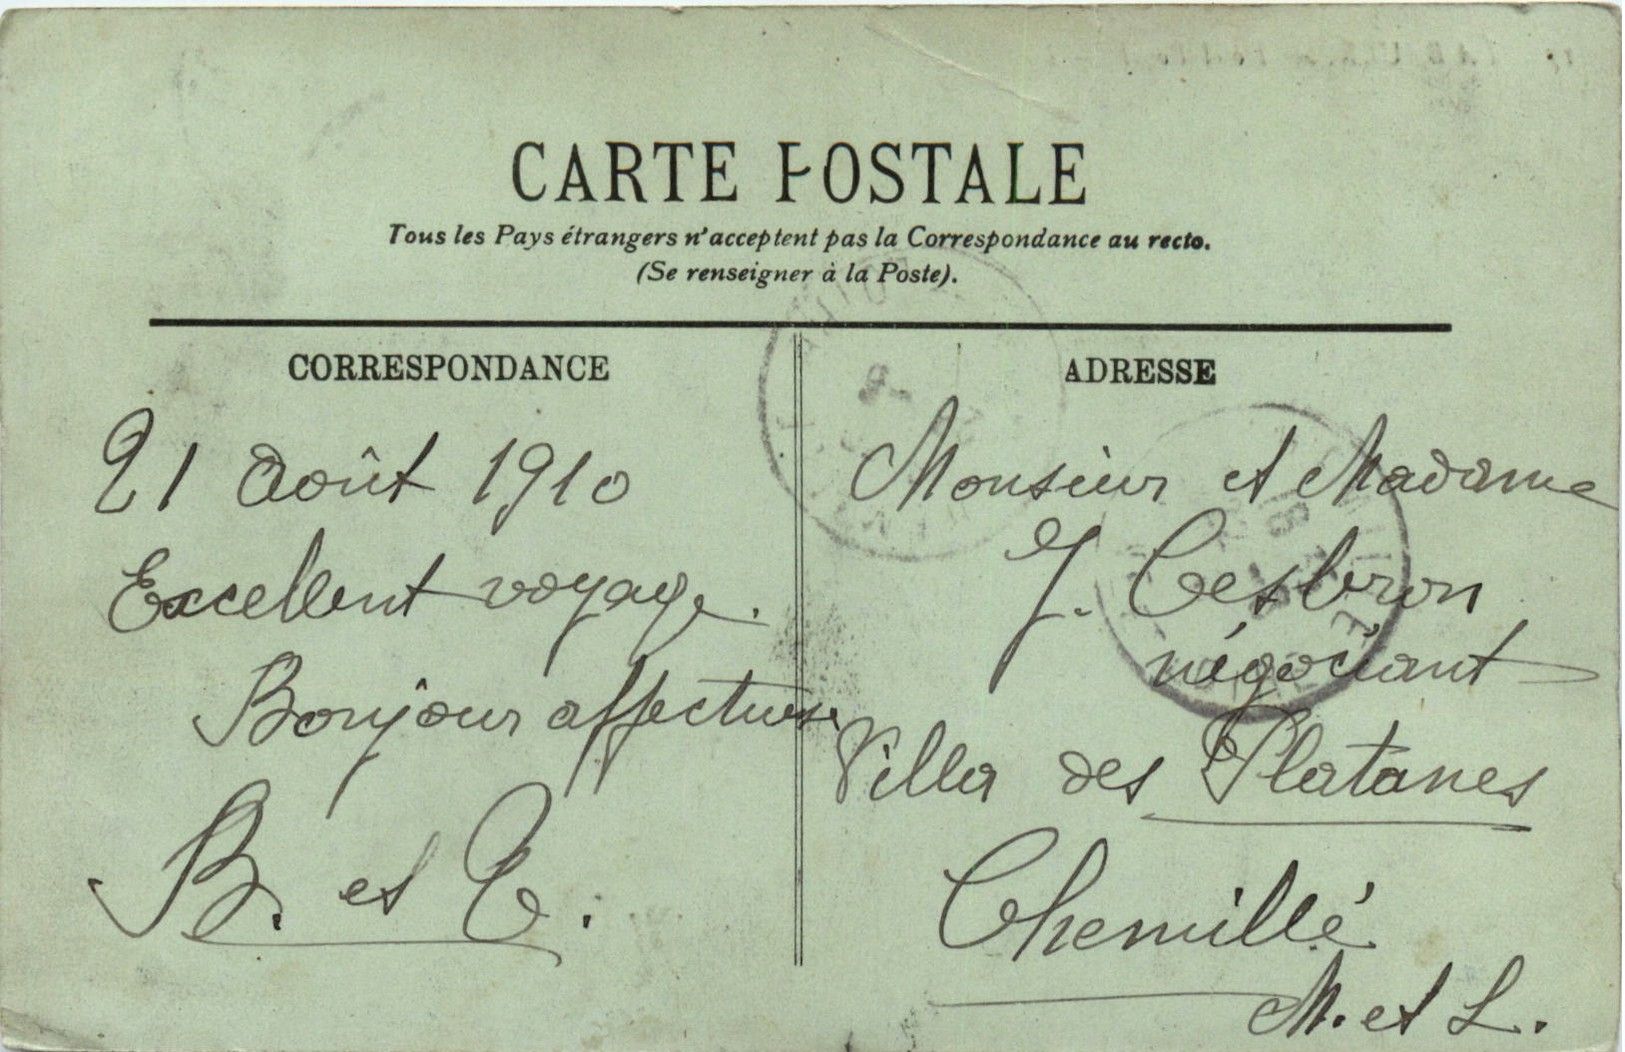 CARTE POSTALE
Tous les Pays étrangers n'acceptent pas la Correspondance au recto.
(Se renseigner à la Poste).
CORRESPONDANCE
21 Août 1910
Excellent voyage.
Bonjour affectueux
B. et C.
ADRESSE
Monsieur et Madame
J. Cesbron
négociant
Villa des Platanes
Chemillé
M. et L.